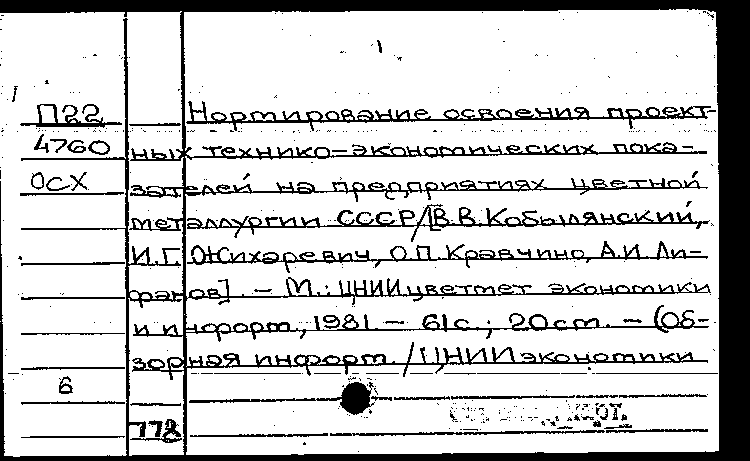 П22 Нормирование освоения проект-
4760 ных технико-экономических пока-
ОСХ зателей на предприятиях цветной
металлургии СССР/[В.В. Кобылянский,
И.Г. Жихаревич, О.П. Кравчино, А.И. Ли-
фанов]. - М.: ЦНИИцветмет экономики
и информ., 1981 - 61с.; 20см. - (Об-
зорная информ. / ЦНИИ экономики
6
778